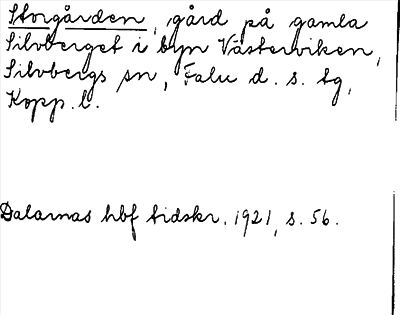 Storgården, gård på gamla
Silvberget i byn Västerviken,
Silvbergs sn, Falu d. s. tg,
Kopp. l.
Dalarnas hbf tidskr. 1921, s. 56.